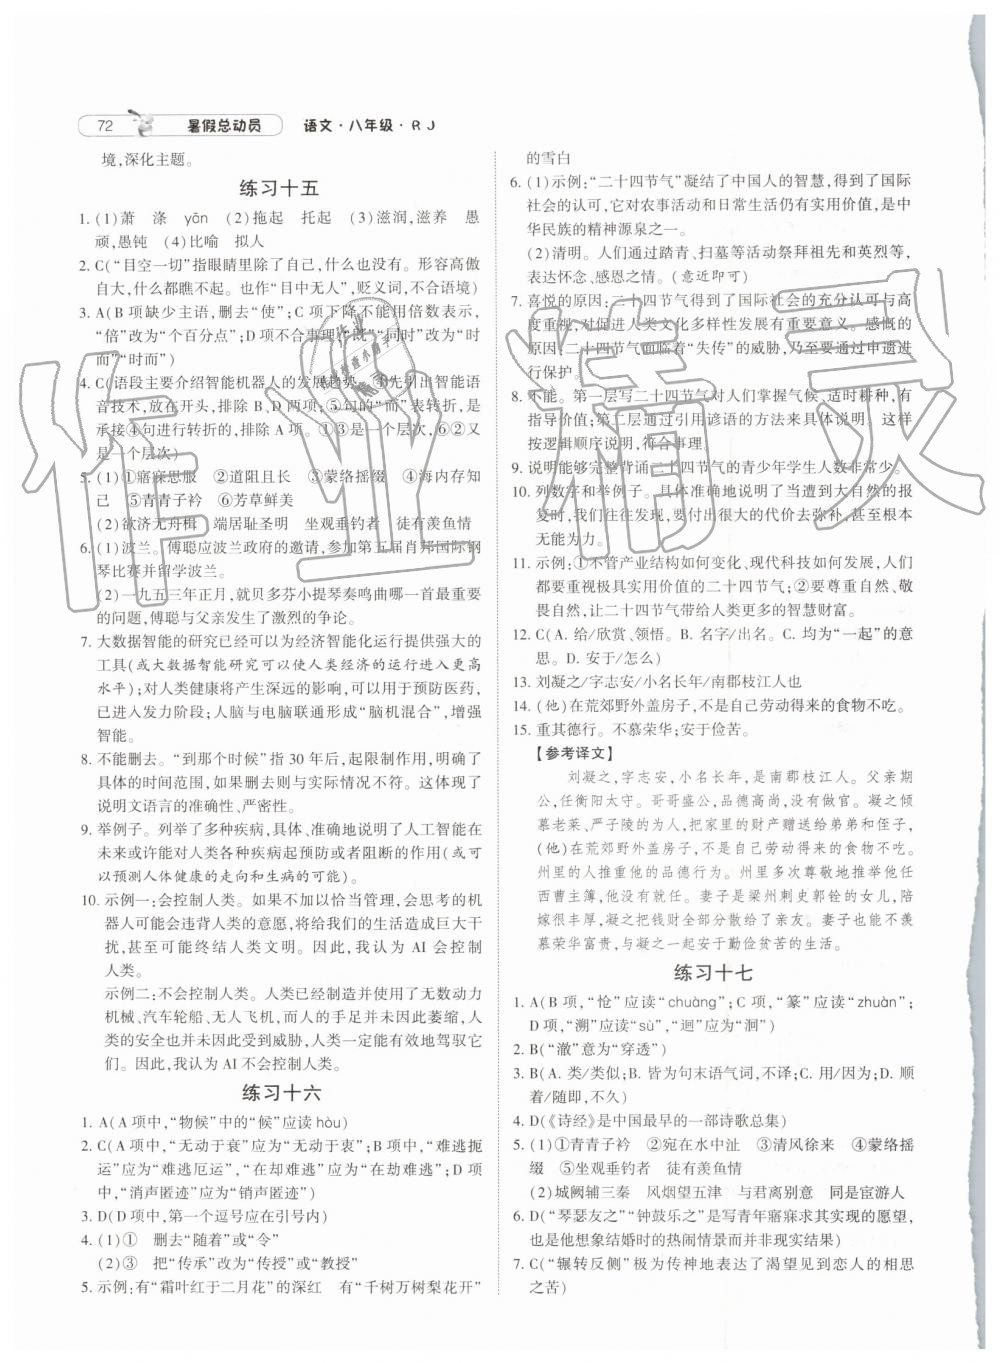 72 暑假总动员 语文·八年级·RJ
境,深化主题。
练习十五
1. (1)萧 涤 yān (2)拖起 托起 (3)滋润,滋养 愚
顽,愚钝 (4)比喻 拟人
2. C(“目空一切”指眼睛里除了自己,什么也没有。形容高傲
自大,什么都瞧不起。也作“目中无人”,贬义词,不合语境)
3. A(B项缺少主语,删去“使”;C项下降不能用倍数表示,
“倍”改为“个百分点”;D项不合事理,“既”“同时”改为“时
而”“时而”)
4. C(语段主要介绍智能机器人的发展趋势。③先引出智能语
音技术,放在开头,排除B、D两项;⑤句的“而”表转折,是
承接④句进行转折的,排除A项。①③是一个层次,⑥②又
是一个层次)
5. (1)①寤寐思服 ②道阻且长 ③蒙络摇缀 ④海内存知
己 ⑤青青子衿 ⑥芳草鲜美
(2)欲济无舟楫 端居耻圣明 坐观垂钓者 徒有羡鱼情
6. (1)波兰。傅聪应波兰政府的邀请,参加第五届肖邦国际钢
琴比赛并留学波兰。
(2)一九五三年正月,就贝多芬小提琴奏鸣曲哪一首最重要
的问题,傅聪与父亲发生了激烈的争论。
7. 大数据智能的研究已经可以为经济智能化运行提供强大的
工具(或大数据智能研究可以使人类经济的运行进入更高
水平);对人类健康将产生深远的影响,可以用于预防医药,
已进入发力阶段;人脑与电脑联通形成“脑机混合”,增强
智能。
8. 不能删去。“到那个时候”指30年后,起限制作用,交代了
具体的时间范围,如果删去则与实际情况不符。这体现了
说明文语言的准确性、严密性。
9. 举例子。列举了多种疾病,具体、准确地说明了人工智能在
未来或许能对这些疾病起预防或者阻断的作用(或可
以预测人体健康的走向和生病的可能)。
10. 示例一:会控制人类。如果不加以恰当管理,会思考的机
器人可能会违背人类的意愿,将给我们的生活造成巨大干
扰,甚至可能终结人类文明。因此,我认为AI会控制
人类。
示例二:不会控制人类。人类已经制造并使用了无数动力
机械、汽车轮船、无人飞机,而人的手足并未因此萎缩,人
类的安全也并未因此受到威胁,人类一定能有效地驾驭它
们。因此,我认为AI不会控制人类。
练习十六
1. A(A项中,“物候”中的“候”应读hòu)
2. C(A项中,“无动于衰”应为“无动于衷”;B项中,“难逃扼
运”应为“难逃厄运”,“在却难逃”应为“在劫难逃”;D项
中,“消声匿迹”应为“销声匿迹”)
3. D(D项中,第一个逗号应在引号内)
4. (1)① 删去“随着”或“令”
(2)③ 把“传承”改为“传授”或“教授”
5. 示例:有“霜叶红于二月花”的深红 有“千树万树梨花开”
的雪白
6. (1)示例:“二十四节气”凝结了中国人的智慧,得到了国际
社会的认可,它对农事活动和日常生活仍有实用价值,是中
华民族的精神源泉之一。
(2)清明。人们通过踏青、扫墓等活动祭拜祖先和英烈等,
表达怀念、感恩之情。(意近即可)
7. 喜悦的原因:二十四节气得到了国际社会的充分认可与高
度重视,对促进人类文化多样性发展有重要意义。感慨的
原因:二十四节气面临着“失传”的威胁,乃至要通过申遗进
行保护。
8. 不能。第一层写二十四节气对人们掌握气候、适时耕种,有
指导价值;第二层通过引用谚语的方法来具体说明。这样
按逻辑顺序说明,符合事理。
9. 说明能够完整背诵二十四节气的青少年学生人数非常少。
10. 列数字和举例子。具体准确地说明了当遭到大自然的报
复时,我们往往发现,要付出很大的代价去弥补,甚至根本
无能为力。
11. 示例:①不管产业结构如何变化、现代科技如何发展,人们
都要重视极具实用价值的二十四节气;②要尊重自然、敬
畏自然,让二十四节气带给人类更多的智慧财富。
12. C(A. 给/欣赏、领悟。B. 名字/出名。C. 均为“一起”的意
思。D. 安于/怎么)
13. 刘凝之/字志安/小名长年/南郡枝江人也
14. (他)在荒郊野外盖房子,不是自己劳动得来的食物不吃。
15. 重其德行。不慕荣华;安于俭苦。
【参考译文】
刘凝之,字志安,小名长年,是南郡枝江人。父亲期
公,任衡阳太守。哥哥盛公,品德高尚,没有做官。凝之倾
慕老莱、严子陵的为人,把家里的财产赠送给弟弟和侄子,
(他)在荒郊野外盖房子,不是自己劳动得来的食物不吃。
州里的人推重他的品德行为。州里多次尊敬地推举他作
西曹主簿,他没有就任。妻子是梁州刺史郭铨的女儿,陪
嫁很丰厚,凝之把钱财全部分散给了亲友。妻子也能不羡
慕荣华富贵,与凝之一起安于勤俭贫苦的生活。
练习十七
1. A(B项,“怆”应读“chuàng”;C项,“篆”应读“zhuàn”;
D项,“溯”应读“sù”,“迴”应为“洄”)
2. B(“澈”意为“穿透”)
3. B(A. 类/类似;B. 皆为句末语气词,不译;C. 用/因为;D. 顺
着/随即,不久)
4. D(《诗经》是中国最早的一部诗歌总集)
5. (1)①青青子衿 ②宛在水中沚 ③清风徐来 ④蒙络摇
缀 ⑤坐观垂钓者 徒有羡鱼情
(2)城阙辅三秦 风烟望五津 与君离别意 同是宦游人
6. D(“琴瑟友之”“钟鼓乐之”是写青年寤寐求其实现的愿望,
也是他想象结婚时的热闹情景而并非现实结果)
7. C(“辗转反侧”极为传神地表达了渴望见到恋人的相思
之苦)